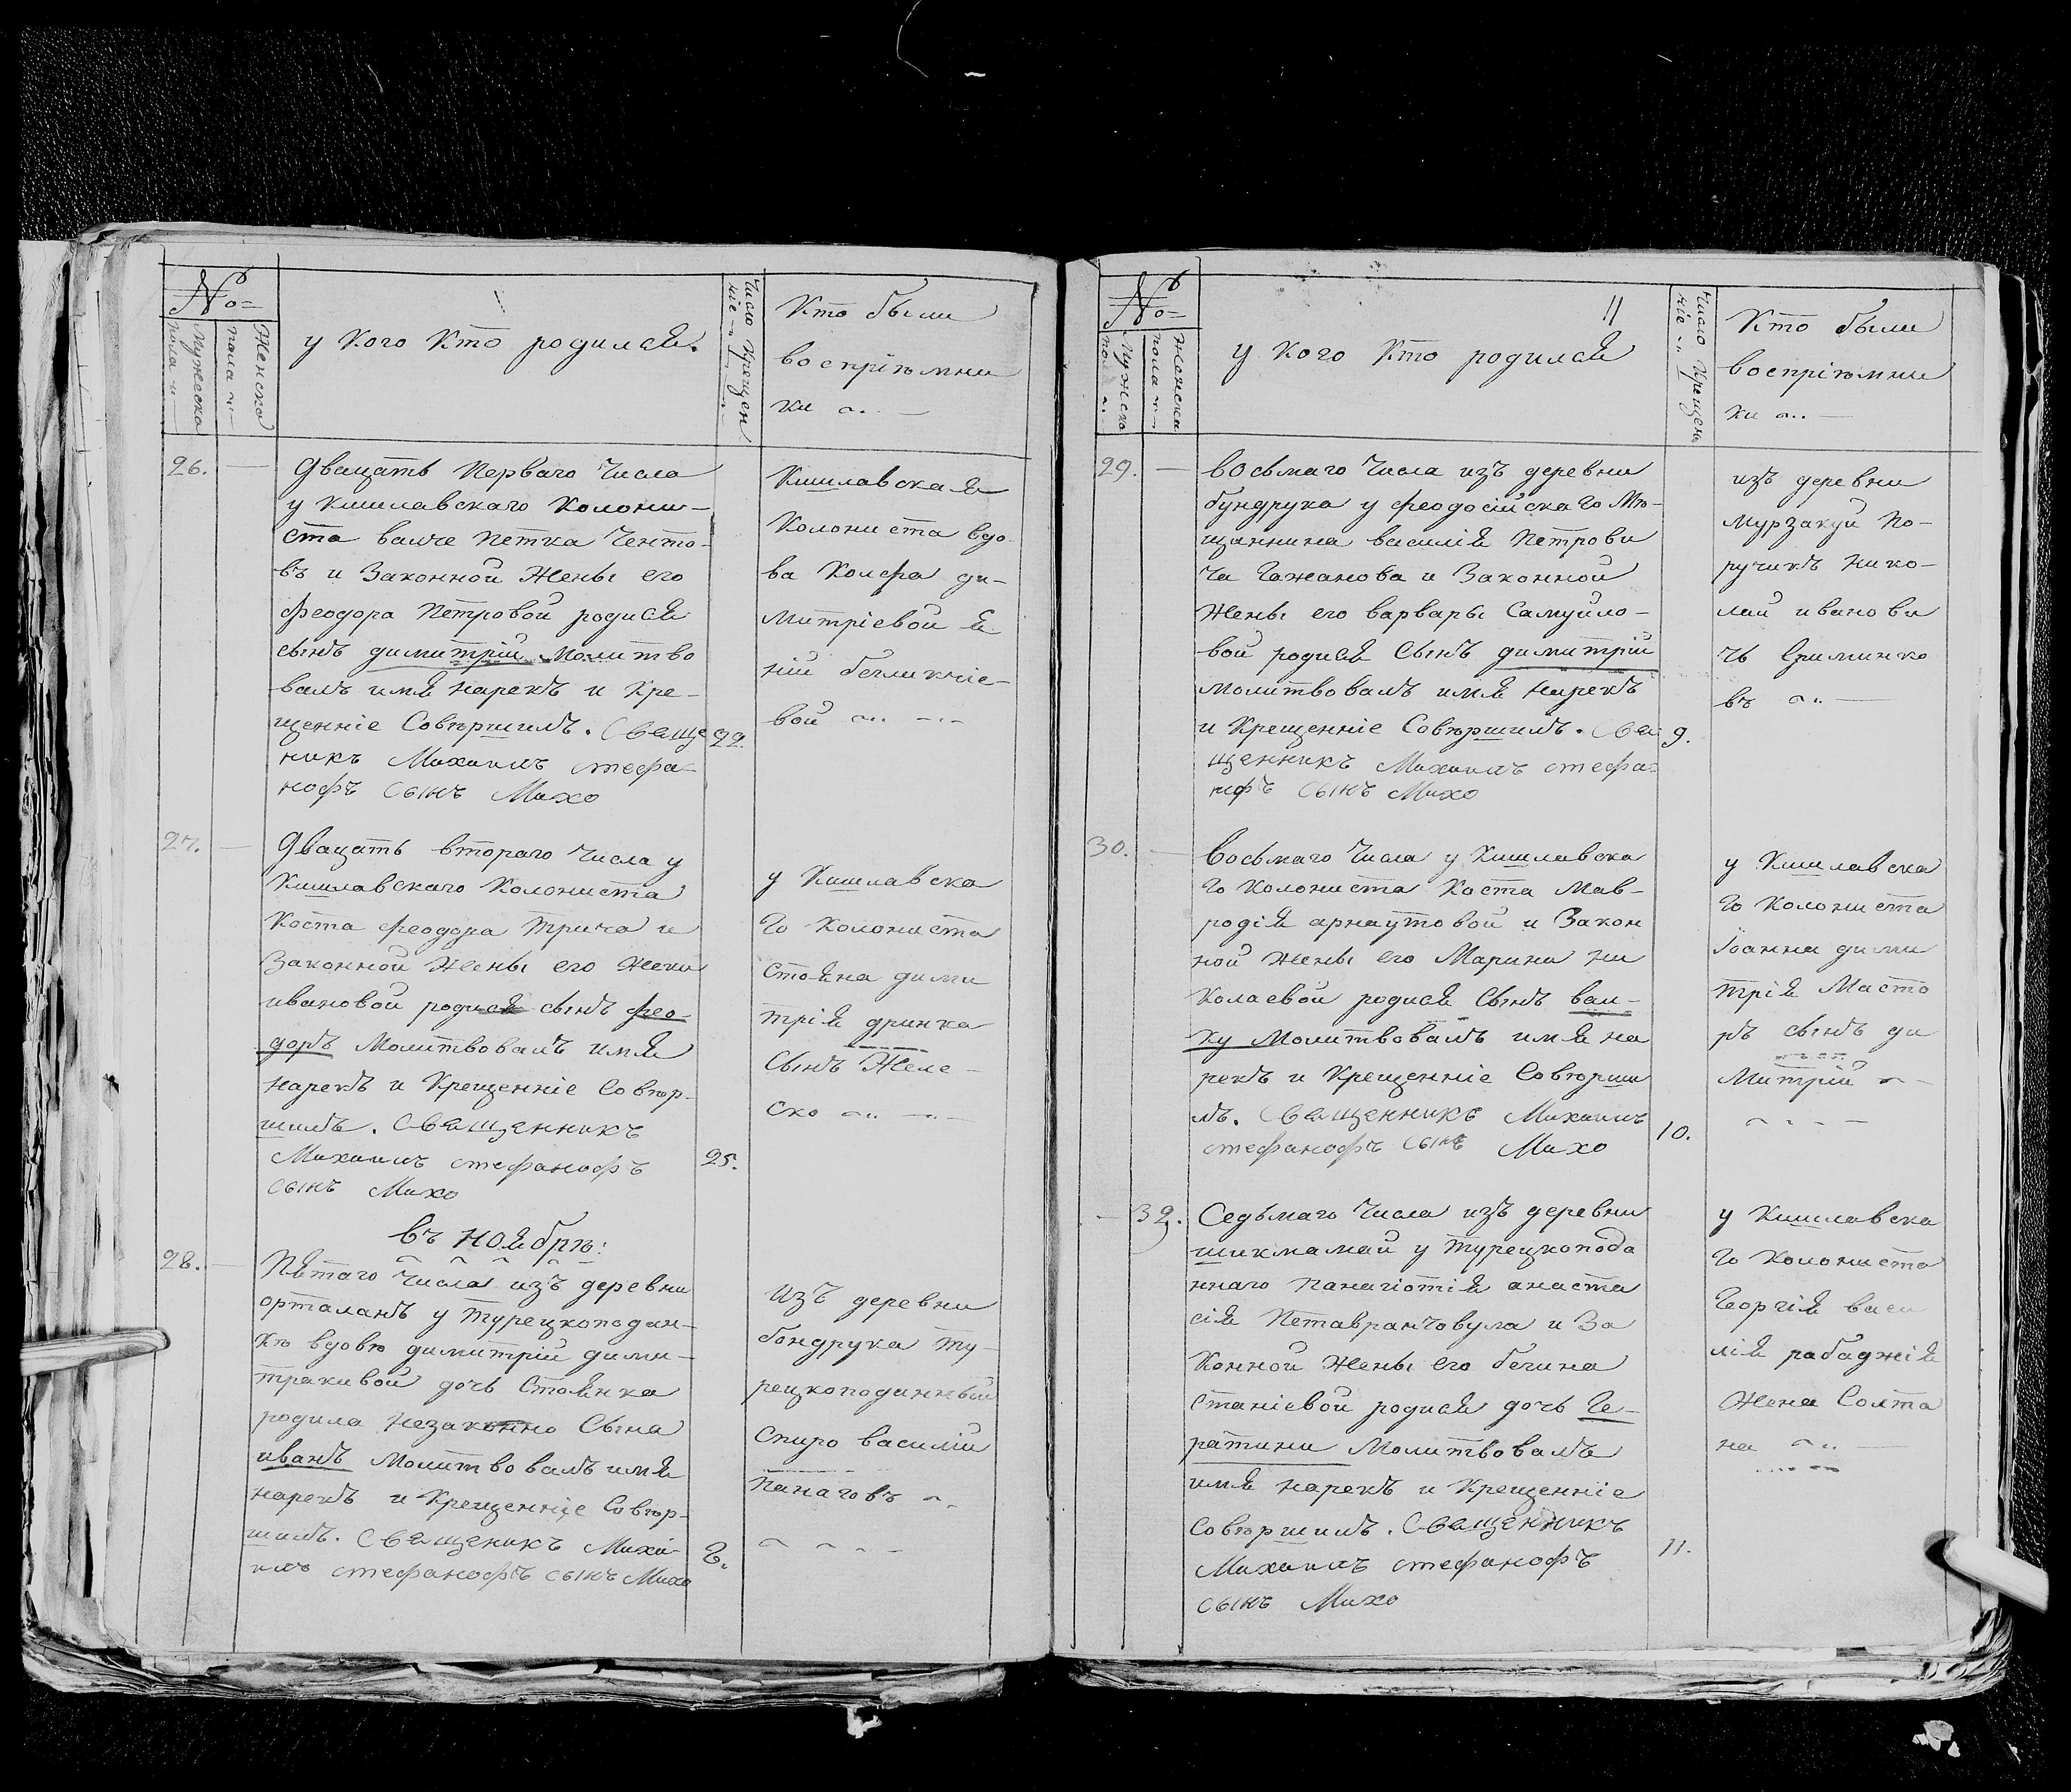 №
Мужеска
пола
Женска
пола
у кого кто родился.
Число Крещен
ніе
Кто были
воспріѣмни
ки
26.
Двацать Перваго Числа
у Кишлавскаго Колони-
ста валче Петка Ченто-
въ и Законной Жены его
феодора Петровой родися
сынъ димитрій Молитво
валъ имя нарекъ и Кре-
щенніе Совѣршилъ. Свяще
никъ Михаилъ стефа-
нофъ сынъ Михо
22.
Кишлавская
Колониста вдо
ва Колефа ди-
митріевой я
ній
вой
27.
Двацать втораго Числа у
Кишлавскаго Колониста
Коста феодора Трича и
Законной Жены его Неки
ивановой родися сынъ фео-
доръ Молитвовалъ имя
нарекъ и Крещенніе Совѣр-
шилъ. Священникъ
Михаилъ стефанофъ
сынъ Михо
25.
у Кишлавска
го Колониста
Стояна дими
трія дринка
Сынъ Желе-
ско
въ ноябрѣ:
28.
Пятаго Числа изъ деревни
орталанъ у Турецкоподан-
хъ вдовѣ димитрій дими-
тракивой дочь Стоянка
родила незаконно Сына
иванъ Молитвовалъ имя
нарекъ и Крещенніе Совѣр-
шилъ. Священикъ Миха-
илъ стефанофъ сынъ Михо
Изъ деревни
бондрука Ту-
рецкоподанный
Спиро василій
Панаговъ
№
11
Мужска
пол
Женска
пола
у кого кто родился
Число Крещен
ніе
Кто были
воспріѣмни
ки
29.
восьмаго Числа изъ деревни
бундрука у феодосійскаго Мѣ-
щаннина василія Петрови
ча Гажанова и Законной
Жены его варвары Самуйло-
вой родися Сынъ димитрій
молитвовалъ имя нарекъ
и Крещенніе Совѣршилъ. Свя
щенникъ Михаилъ стефа-
нфъ сынъ Михо
9.
изъ деревни
мурзакуй По-
ручикъ Нико-
лай иванови
чь
въ
30.
восьмаго Числа у Кишлавска
го Колониста Коста Мав-
родія арнаутовой и Закон
ной Жены его Марини ни
колаевой родися Сынъ вал-
ку Молитвовалъ имя на
рекъ и Крещенніе Совѣрши
лъ. Священникъ Михаилъ
стефанофъ сынъ Михо
10.
у Кишлавска
го Колониста
Іоанна дими
трія Масто
ръ сынъ ди
Митрій
32.
Седьмаго Числа изъ деревни
шикмамай у Турецкопода
ннаго Панагіотія анаста
сія Петавранчовула и За
конной Жены его бечина
Станіевой родися дочь Ге-
ратини Молитвовалъ
имя нарекъ и Крещенніе
Совѣршилъ. Священникъ
Михаилъ стефанофъ
сынъ Михо
11.
у Кишлавска
го Колониста
Георгія васи
лія рабаджія
Жена Солта
на